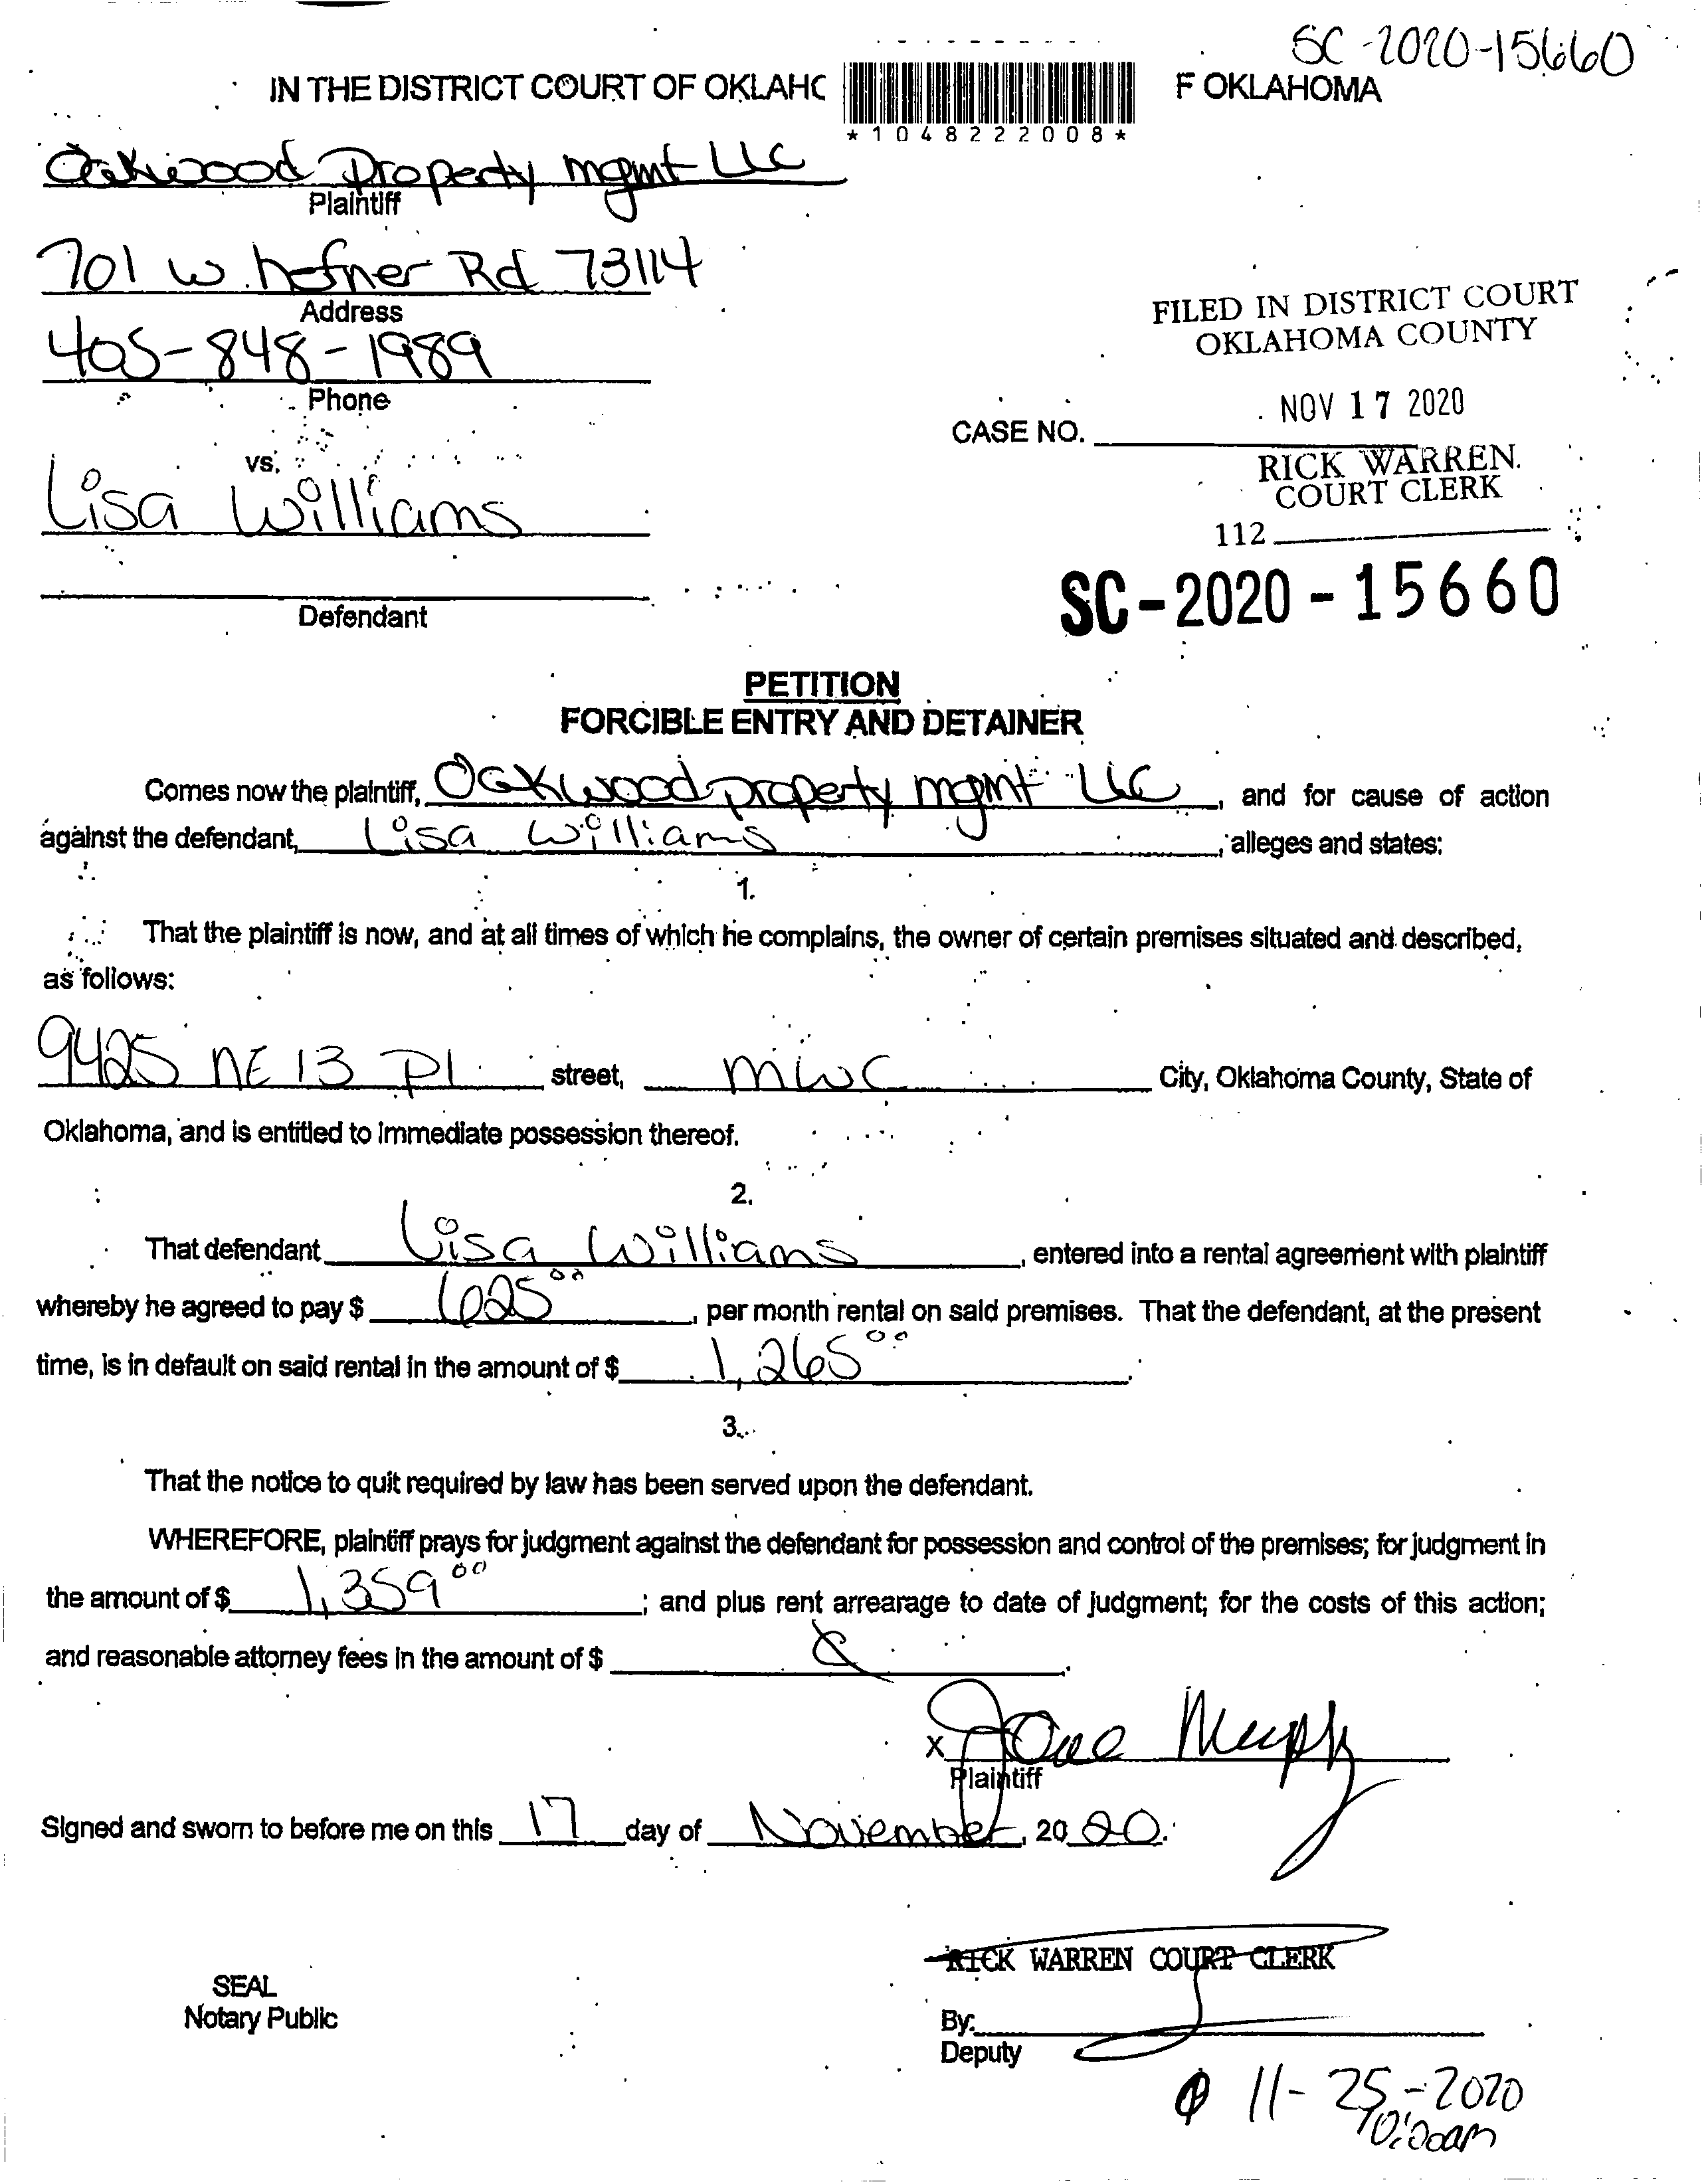 SC-2020-15660
IN THE DISTRICT COURT OF OKLAHC
F OKLAHOMA
*1048222008*
Oakwood Property mgmt LLC
Plaintiff
701 W. hefner Rd 73114
Address
405-848-1989
Phone
FILED IN DISTRICT COURT
OKLAHOMA COUNTY
NOV 17 2020
CASE NO.
RICK WARREN
COURT CLERK
112
vs.
Lisa Williams
Defendant
SC-2020-15660
PETITION
FORCIBLE ENTRY AND DETAINER
Comes now the plaintiff, Oakwood property mgmt LLC, and for cause of action
against the defendant, Lisa Williams, alleges and states:
1.
That the plaintiff is now, and at all times of which he complains, the owner of certain premises situated and described,
as follows:
9425 NE 13 Pl street, MWC City, Oklahoma County, State of
Oklahoma, and is entitled to immediate possession thereof.
2.
That defendant Lisa Williams, entered into a rental agreement with plaintiff
whereby he agreed to pay $ 625 00, per month rental on said premises. That the defendant, at the present
time, is in default on said rental in the amount of $ 1,265 00.
3.
That the notice to quit required by law has been served upon the defendant.
WHEREFORE, plaintiff prays for judgment against the defendant for possession and control of the premises; for judgment in
the amount of $ 1,359 00; and plus rent arrearage to date of judgment; for the costs of this action;
and reasonable attorney fees in the amount of $
X
Plaintiff
Signed and sworn to before me on this 17 day of November, 2020.
RICK WARREN COURT CLERK
SEAL
Notary Public
By:
Deputy
11-25-2020
10:00am